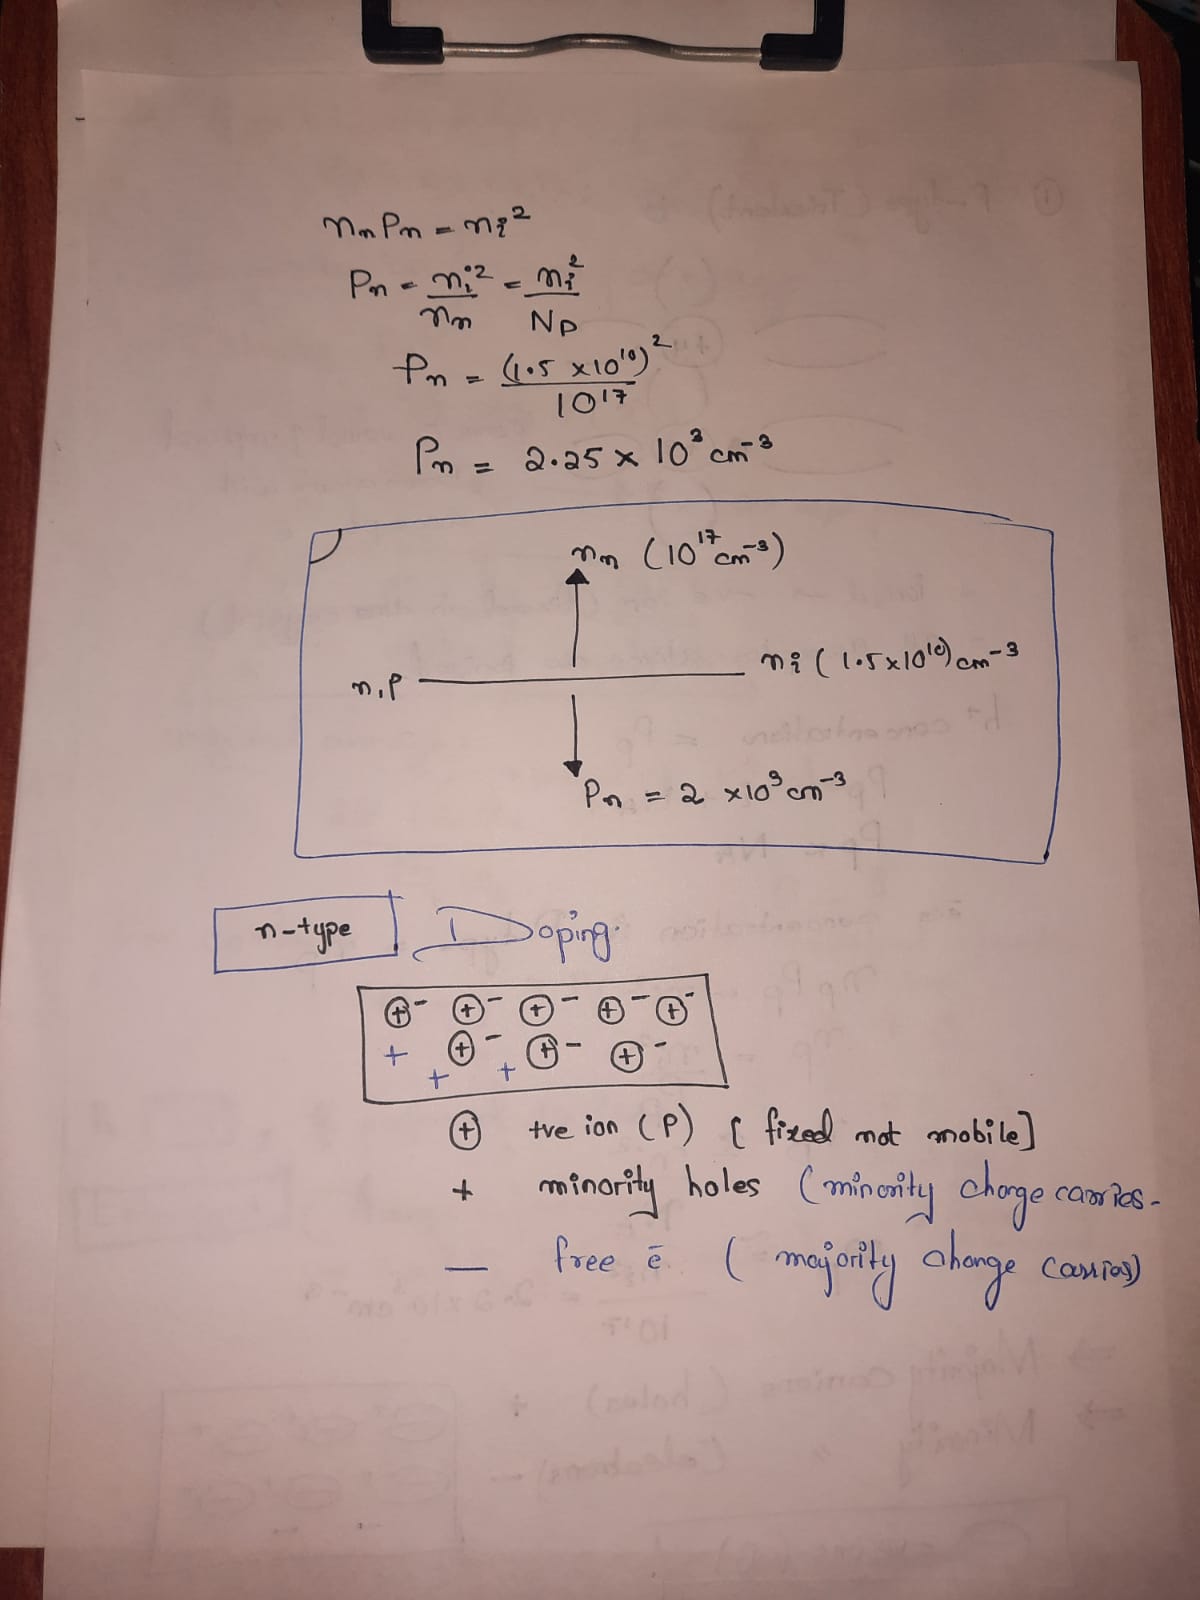 nn Pn = ni²
Pn = ni²/nn = ni²/ND
Pn = (1.5 ×10¹⁰)²/10¹⁷
Pn = 2.25 × 10³ cm⁻³
nn (10¹⁷ cm⁻³)
n,p ni ( 1.5×10¹⁰) cm⁻³
Pn = 2 ×10³ cm⁻³
n-type Doping.
⊕⁻ ⊕⁻ ⊕⁻ ⊕⁻ ⊕⁻
+ ⊕⁻ ⊕⁻ ⊕⁻
+ +
⊕ +ve ion (P) [ fixed not mobile]
+ minority holes (minority charge carries-
— free ē ( majority change carries)